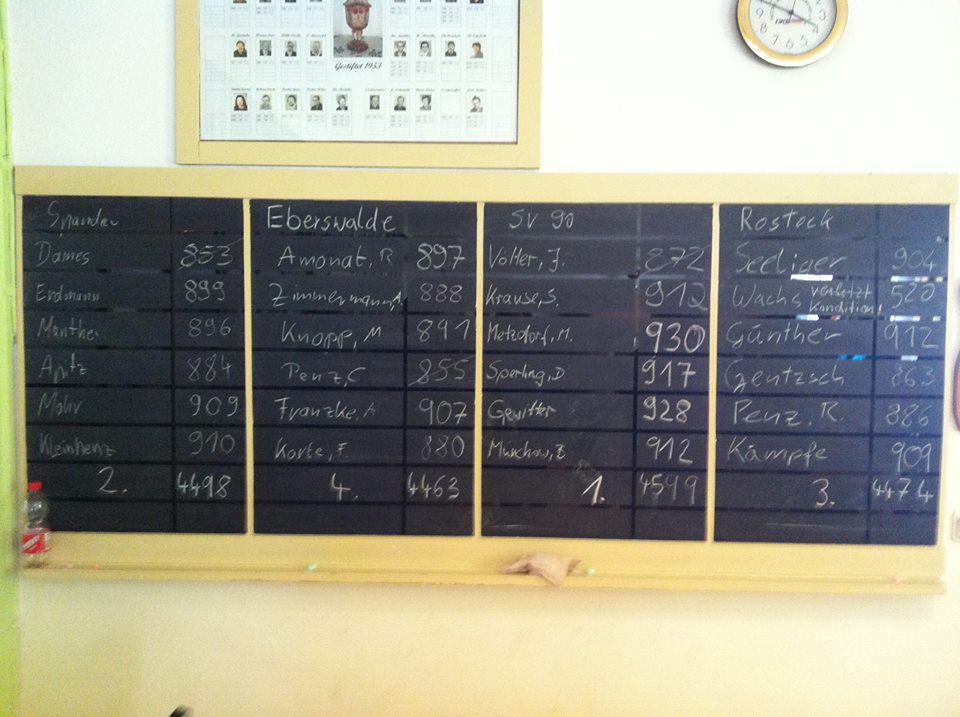 Gestiftet 1953
Spandau
Dames 853
Erdmann 899
Manthei 896
Apitz 884
Mohr 909
Kleinhenz 910
2. 4498
Eberswalde
Amonat, R 897
Zimmermann, A. 888
Knopp, M 891
Penz, C 855
Franzke, A 907
Korte, F. 880
4. 4463
SV 90
Volter, J. 872
Krause, S. 912
Metzdorf, M. 930
Sperling, D 917
Gewitter 928
Murchow, B 912
1. 4599
Rostock
Seeliger 904
Wachs verletzt 520
Kondition!
Günther 912
Gentzsch 863
Penz, R. 886
Kämpfe 909
3. 4474